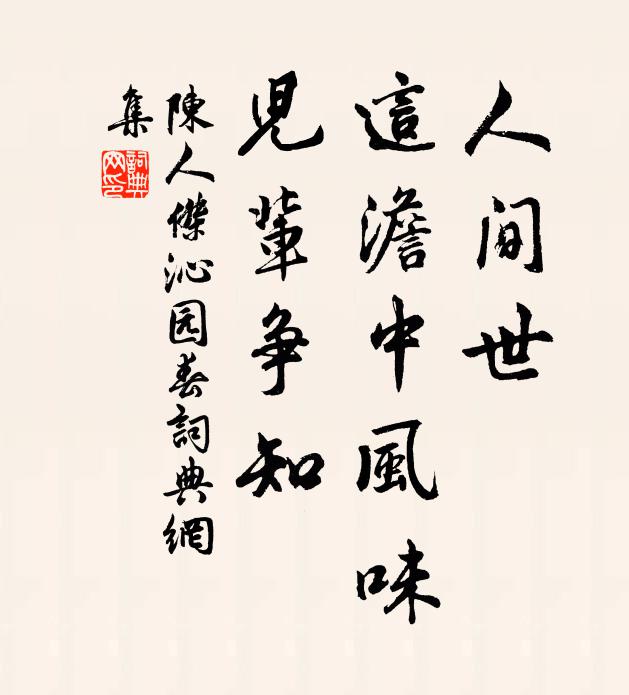 人間世
這澹中風味
兒輩争知
陳人傑沁园春詞典網
集
詞典網印